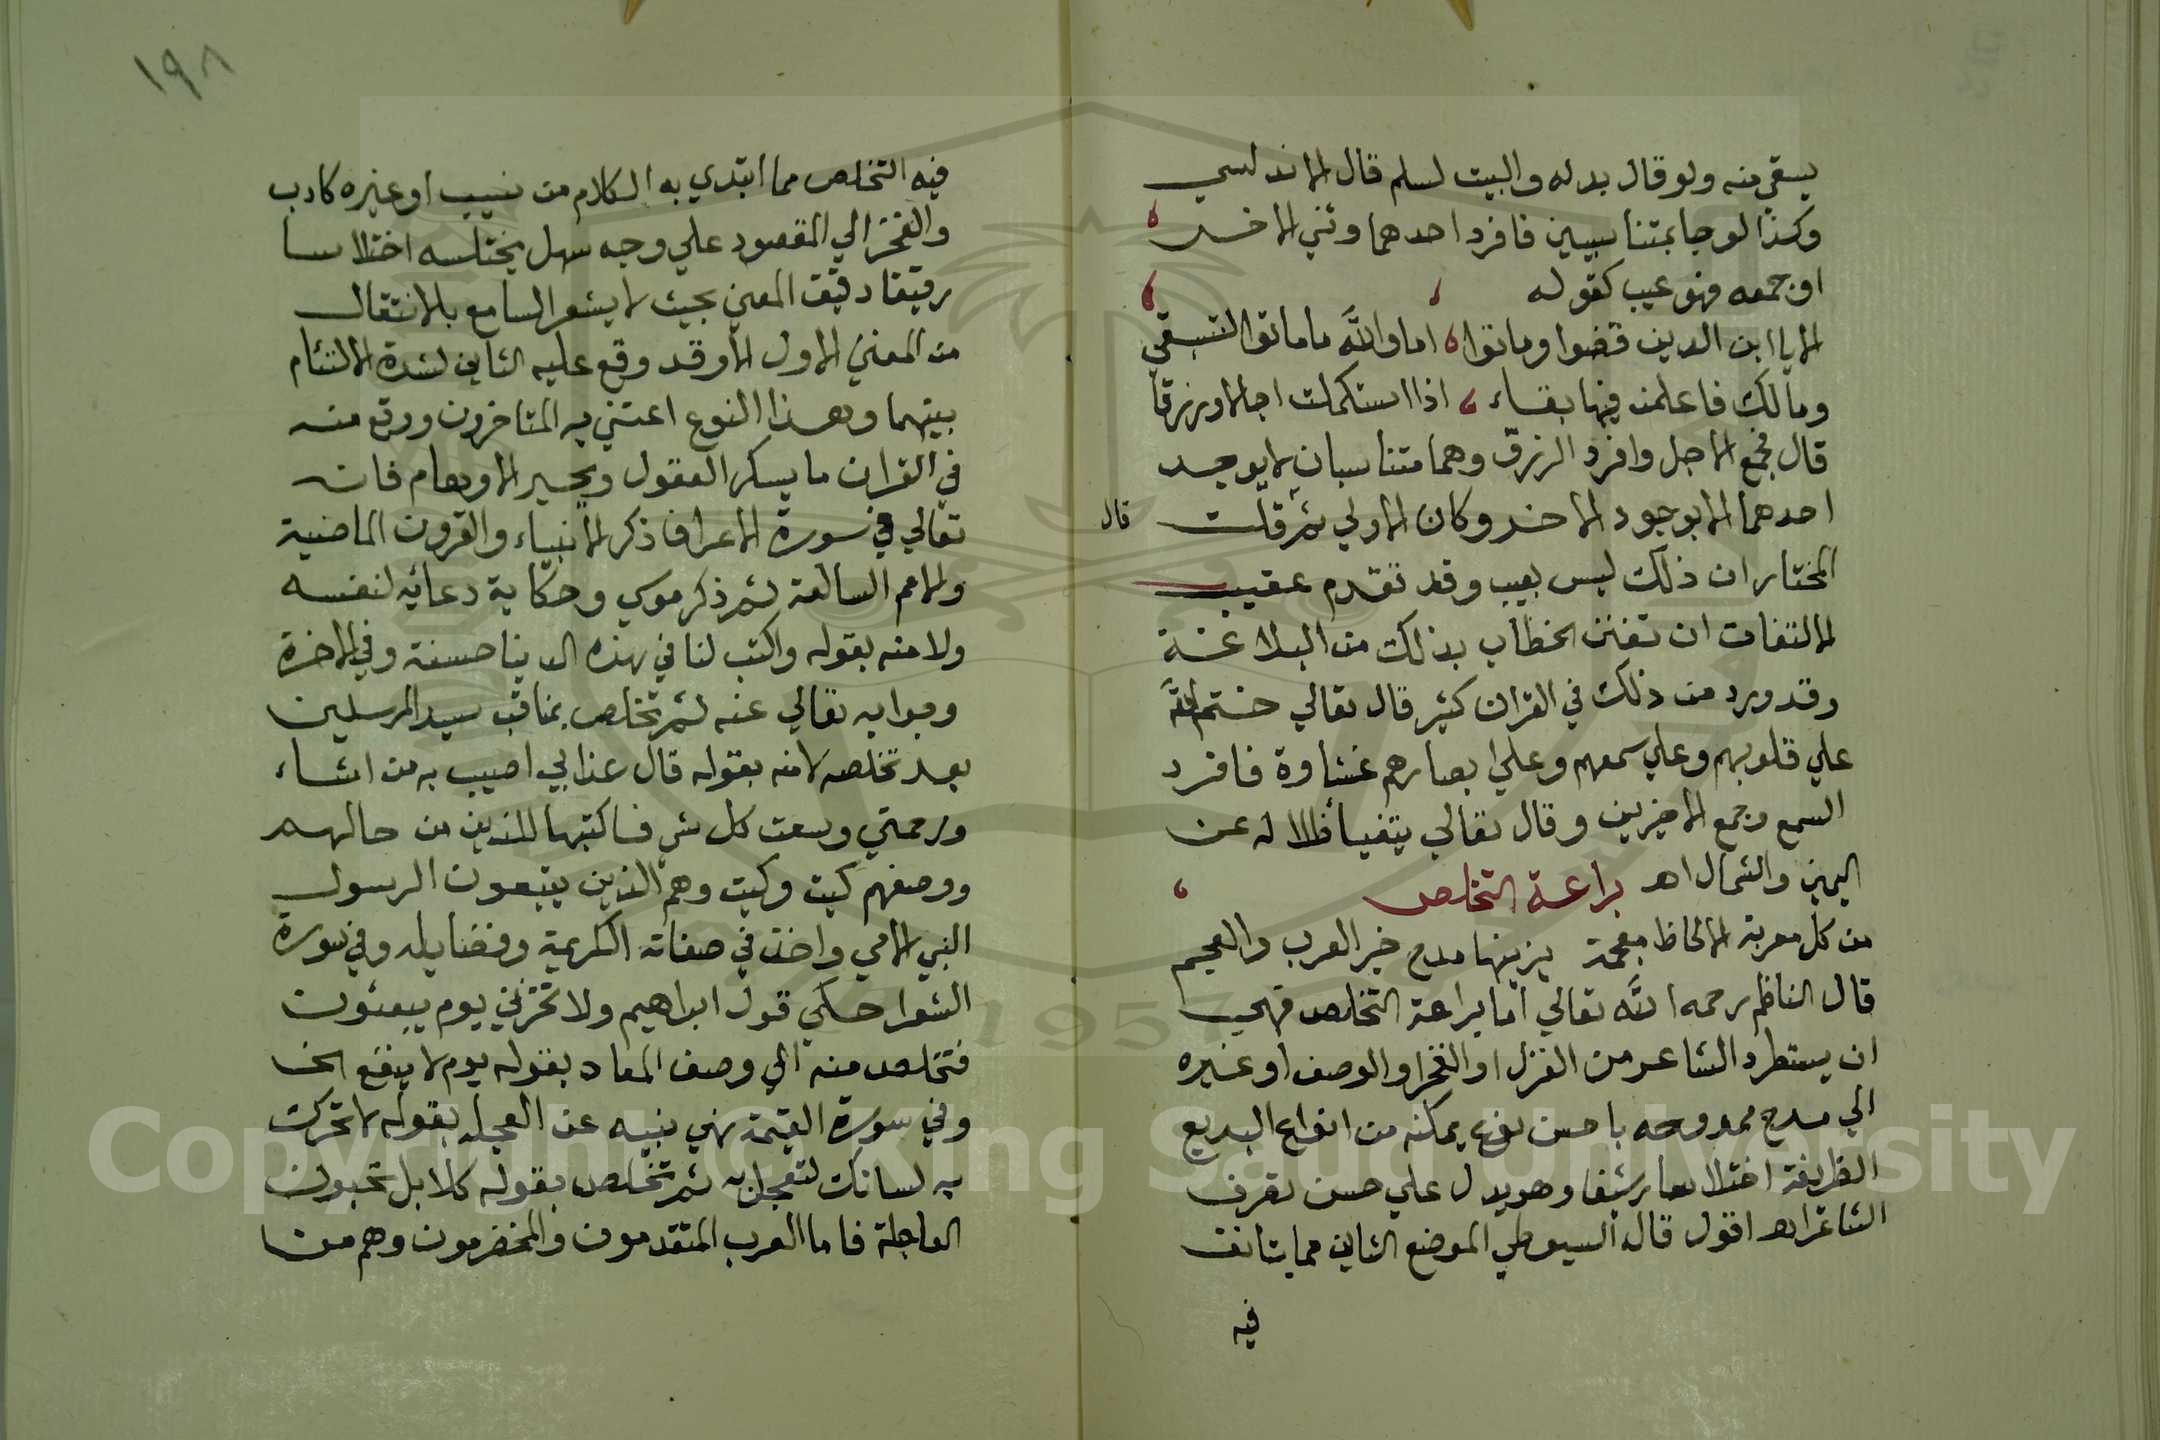 يسقي منه ولو قال بدله والبيت لسلم قال الاندلسي
وكذا لو جا بمتناسبين فافرد احدهما وثني الاخر
او جمعه فهو عيب كقوله
الا يا ابن الذين قضوا وماتوا اما والله ما ماتوا لتبقي
ومالك فاعلمن فيها بقاء اذا استكملت اجالا ورزقا
قال فجمع الاجل وافرد الرزق وهما متناسبان لا يوجد
احدهما الا بوجود الاخر وكان الاولي ثم قلت
قال
المختار ان ذلك ليس بعيب وقد تقدم عقيب
الالتفات ان تفنن الخطاب بذلك من البلاغة
وقد ورد من ذلك في القران كثير قال تعالي ختم الله
علي قلوبهم وعلي سمعهم وعلي ابصارهم غشاوة فافرد
السمع وجمع الاخيرين وقال تعالي يتفيأ ظلاله عن
اليمين والشمال اهـ براعة التخلص
من كل معربة الالحاظ معجمة يزينها مدح خير العرب والعجم
قال الناظم رحمه الله تعالي اما براعة التخلص فهي
ان يستطرد الشاعر من الغزل او الفخر او الوصف او غيره
الي مدح ممدوحه باحسن نوع يمكنه من انواع البديع
الظريفة اختلاسا رشيقا وهو يدل علي حسن تصرف
الشاعر اهـ اقول قال السيوطي الموضع الثاني مما يتانق
فيه
١٩٨
فيه التخلص مما ابتدي به الكلام من نسيب او غيره كادب
والفخر الي المقصود علي وجه سهل يختلسه اختلاسا
رقيقا دقيق المعني بحيث لا يشعر السامع بالانتقال
من المعني الاول الا وقد وقع عليه الثاني لشدة الالتئام
بينهما وهذا النوع اعتني به المتاخرون ووقع منه
في القران ما يسكر العقول ويحير الاوهام فانه
تعالي في سورة الاعراف ذكر الانبياء والقرون الماضية
والامم السالفة ثم ذكر موسي وحكاية دعائه لنفسه
ولامته بقوله واكتب لنا في هذه الدنيا حسنة وفي الاخرة
وجوابه تعالي عنه ثم تخلص بمناقب سيد المرسلين
بعد تخلصه لامته بقوله قال عذابي اصيب به من اشاء
ورحمتي وسعت كل شي فساكتبها للذين من حالهم
ووصفهم كيت وكيت وهم الذين يتبعون الرسول
النبي الامي واخذ في صفاته الكريمة وفضايله وفي سورة
الشعرا حكي قول ابراهيم ولا تخزني يوم يبعثون
فتخلص منه الي وصف المعاد بقوله يوم لا ينفع الخ
وفي سورة القيمة نهي نبيه عن العجلة بقوله لا تحرك
به لسانك لتعجل به ثم تخلص بقوله كلا بل تحبون
العاجلة فاما العرب المتقدمون والمخضرمون وهم من
1957
Copyright © King Saud University